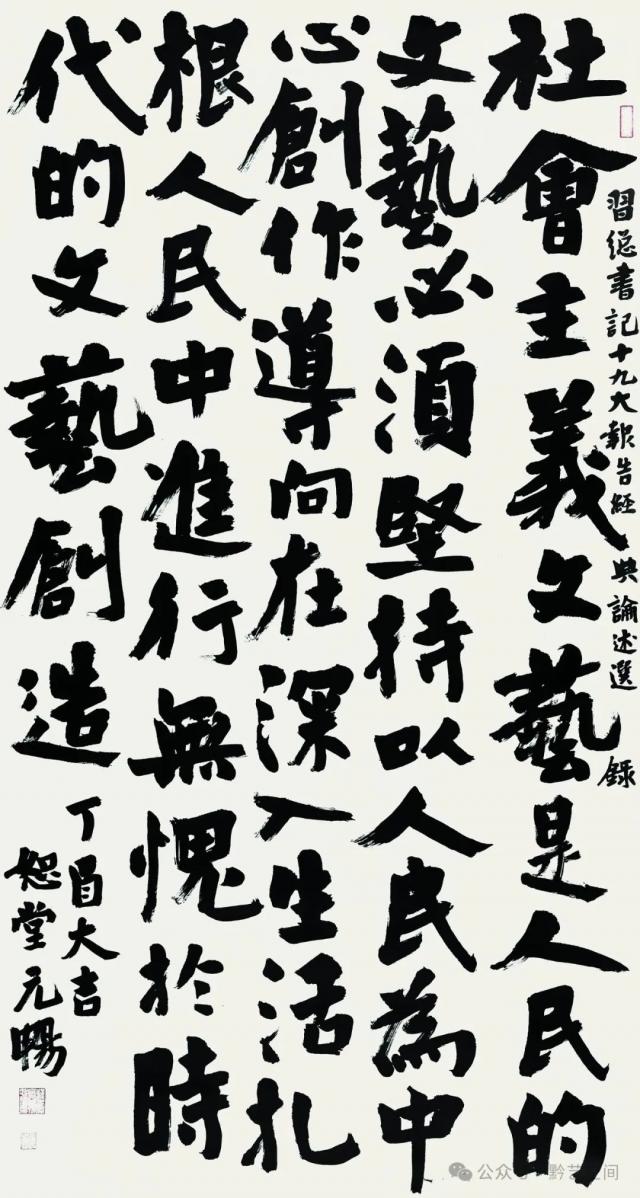 習總書記十九大報告經典論述選錄
社會主義文藝是人民的
文藝必須堅持以人民為中
心創作導向在深入生活扎
根人民中進行無愧於時
代的文藝創造
丁酉大吉
恕堂元暢
公众号·黔艺空间